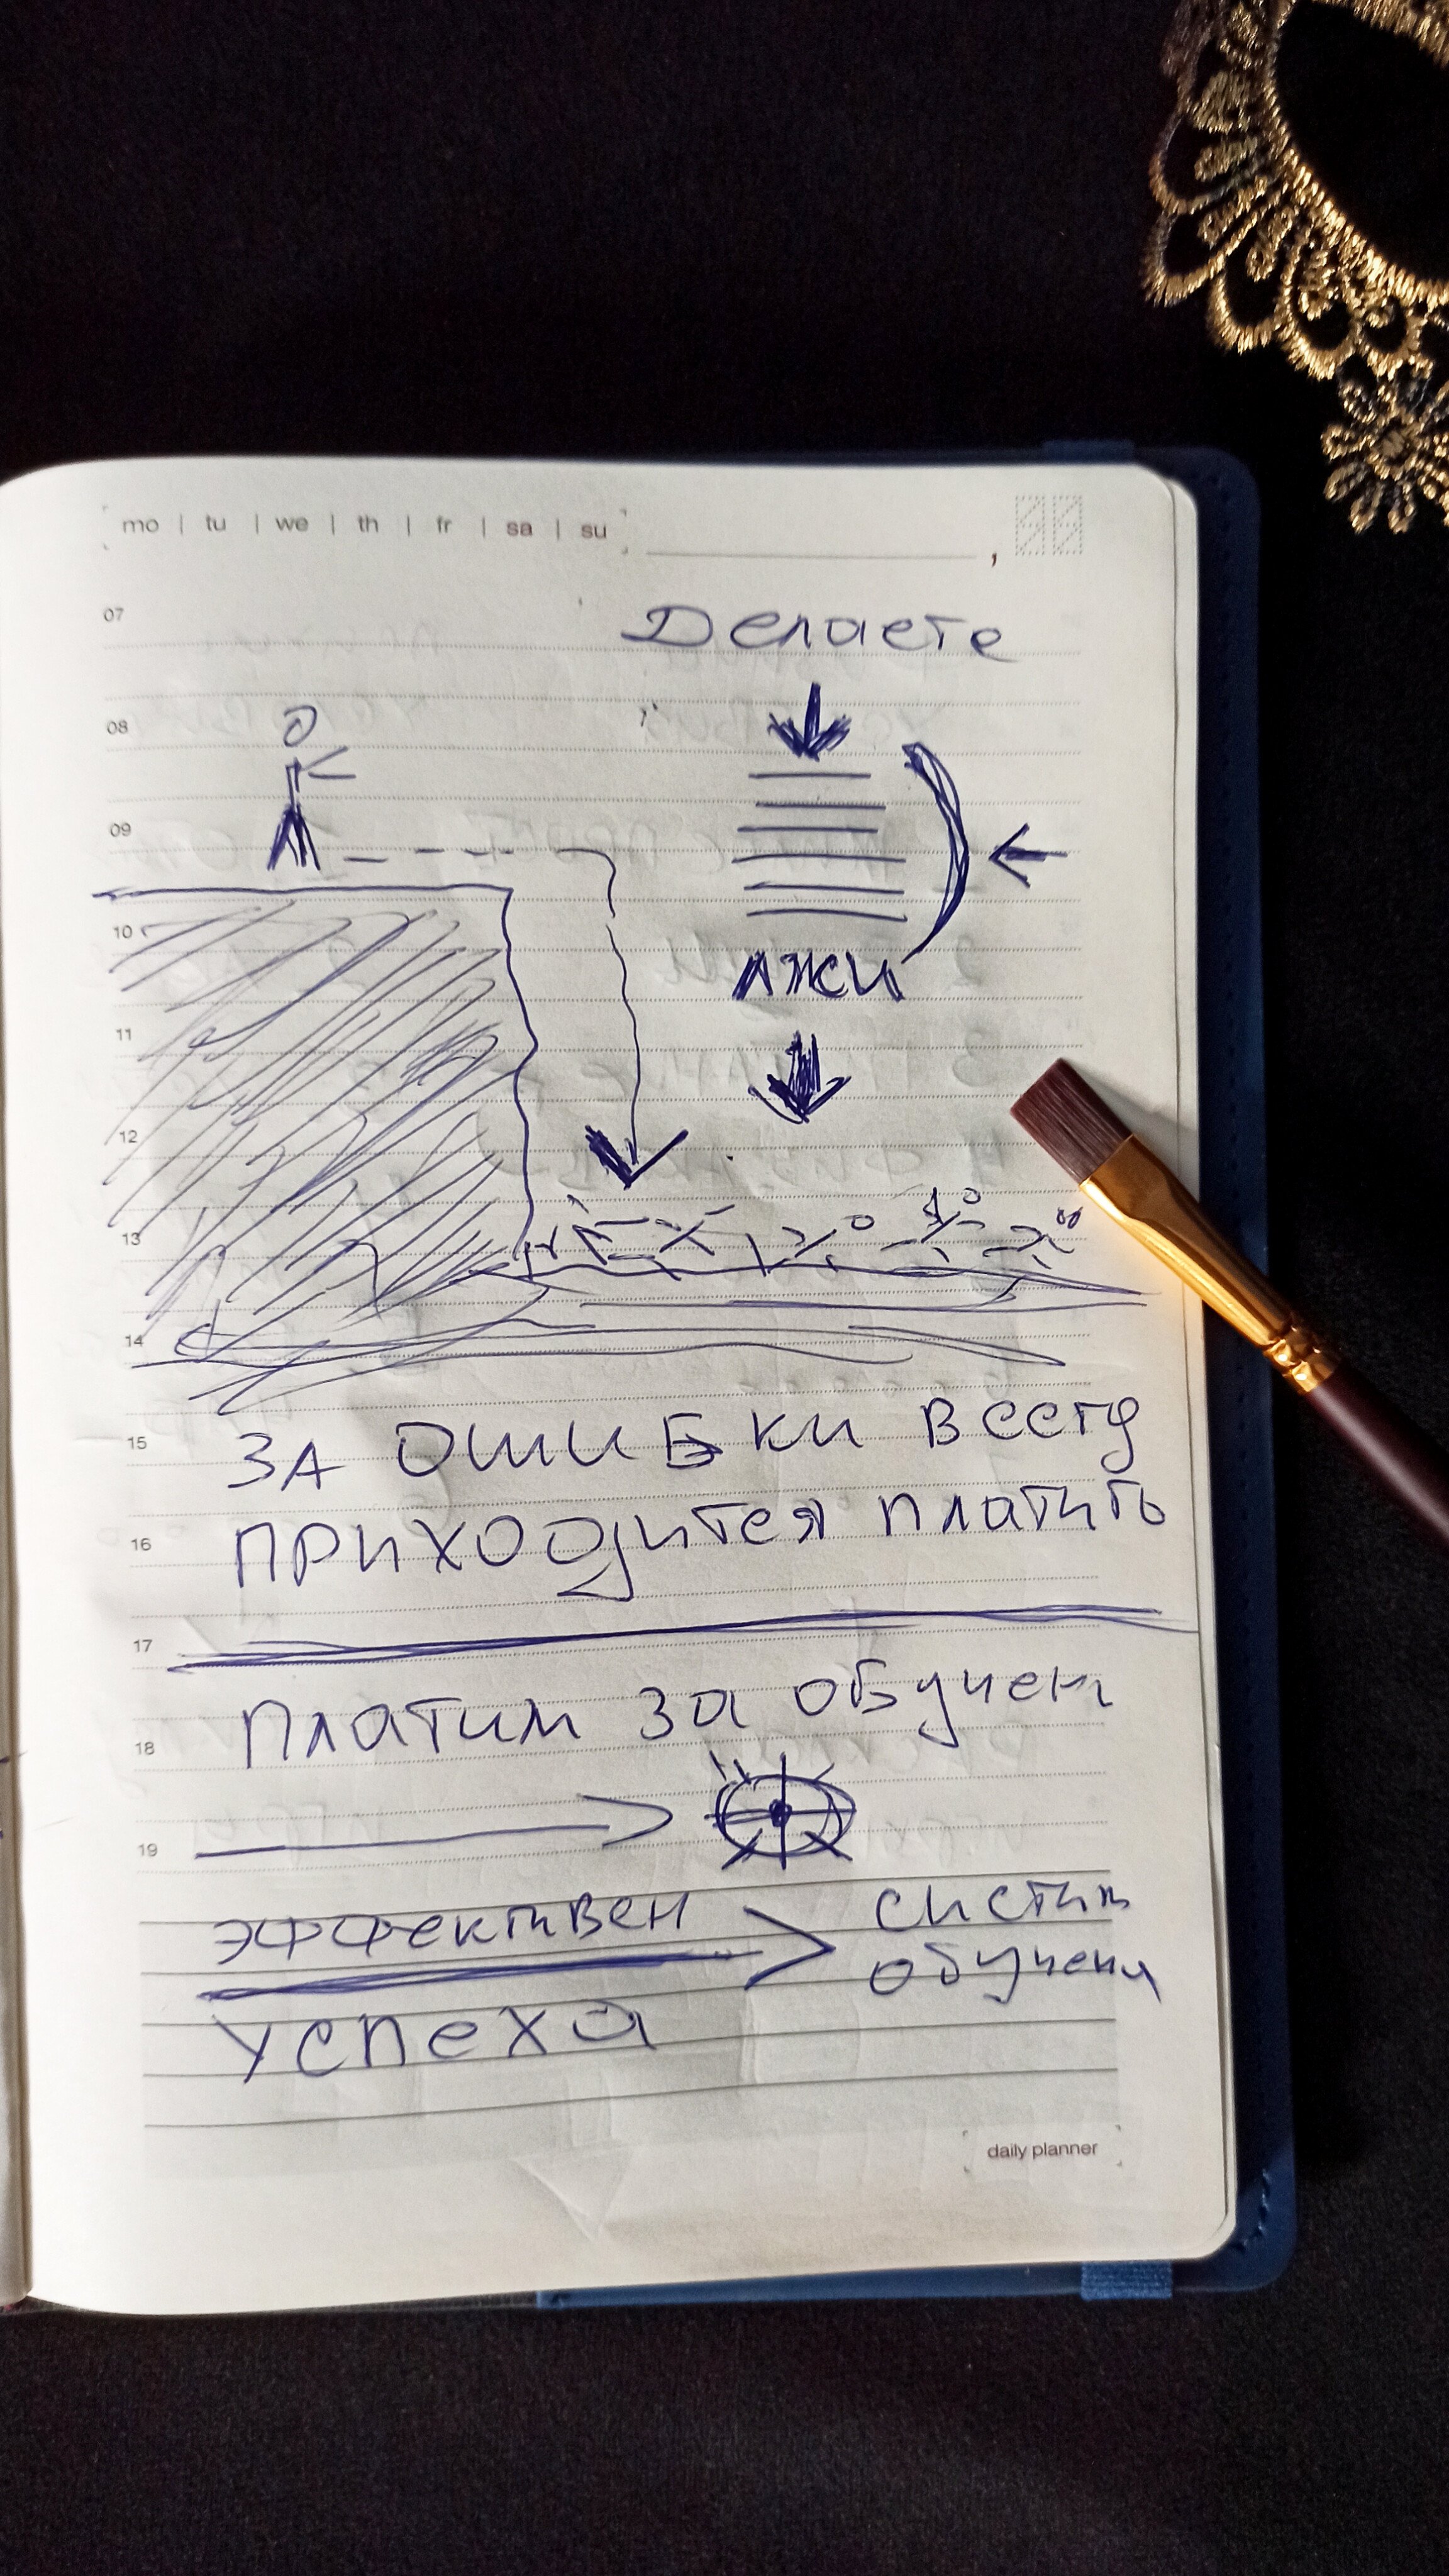 mo | tu | we | th | fr | sa | su
07
Делаете
08
09
лжи
10
11
12
13
14
15
за ошибки всегд
16
приходится платить
17
Платим за обучен
18
19
эффективен
систим
обучени
успеха
daily planner